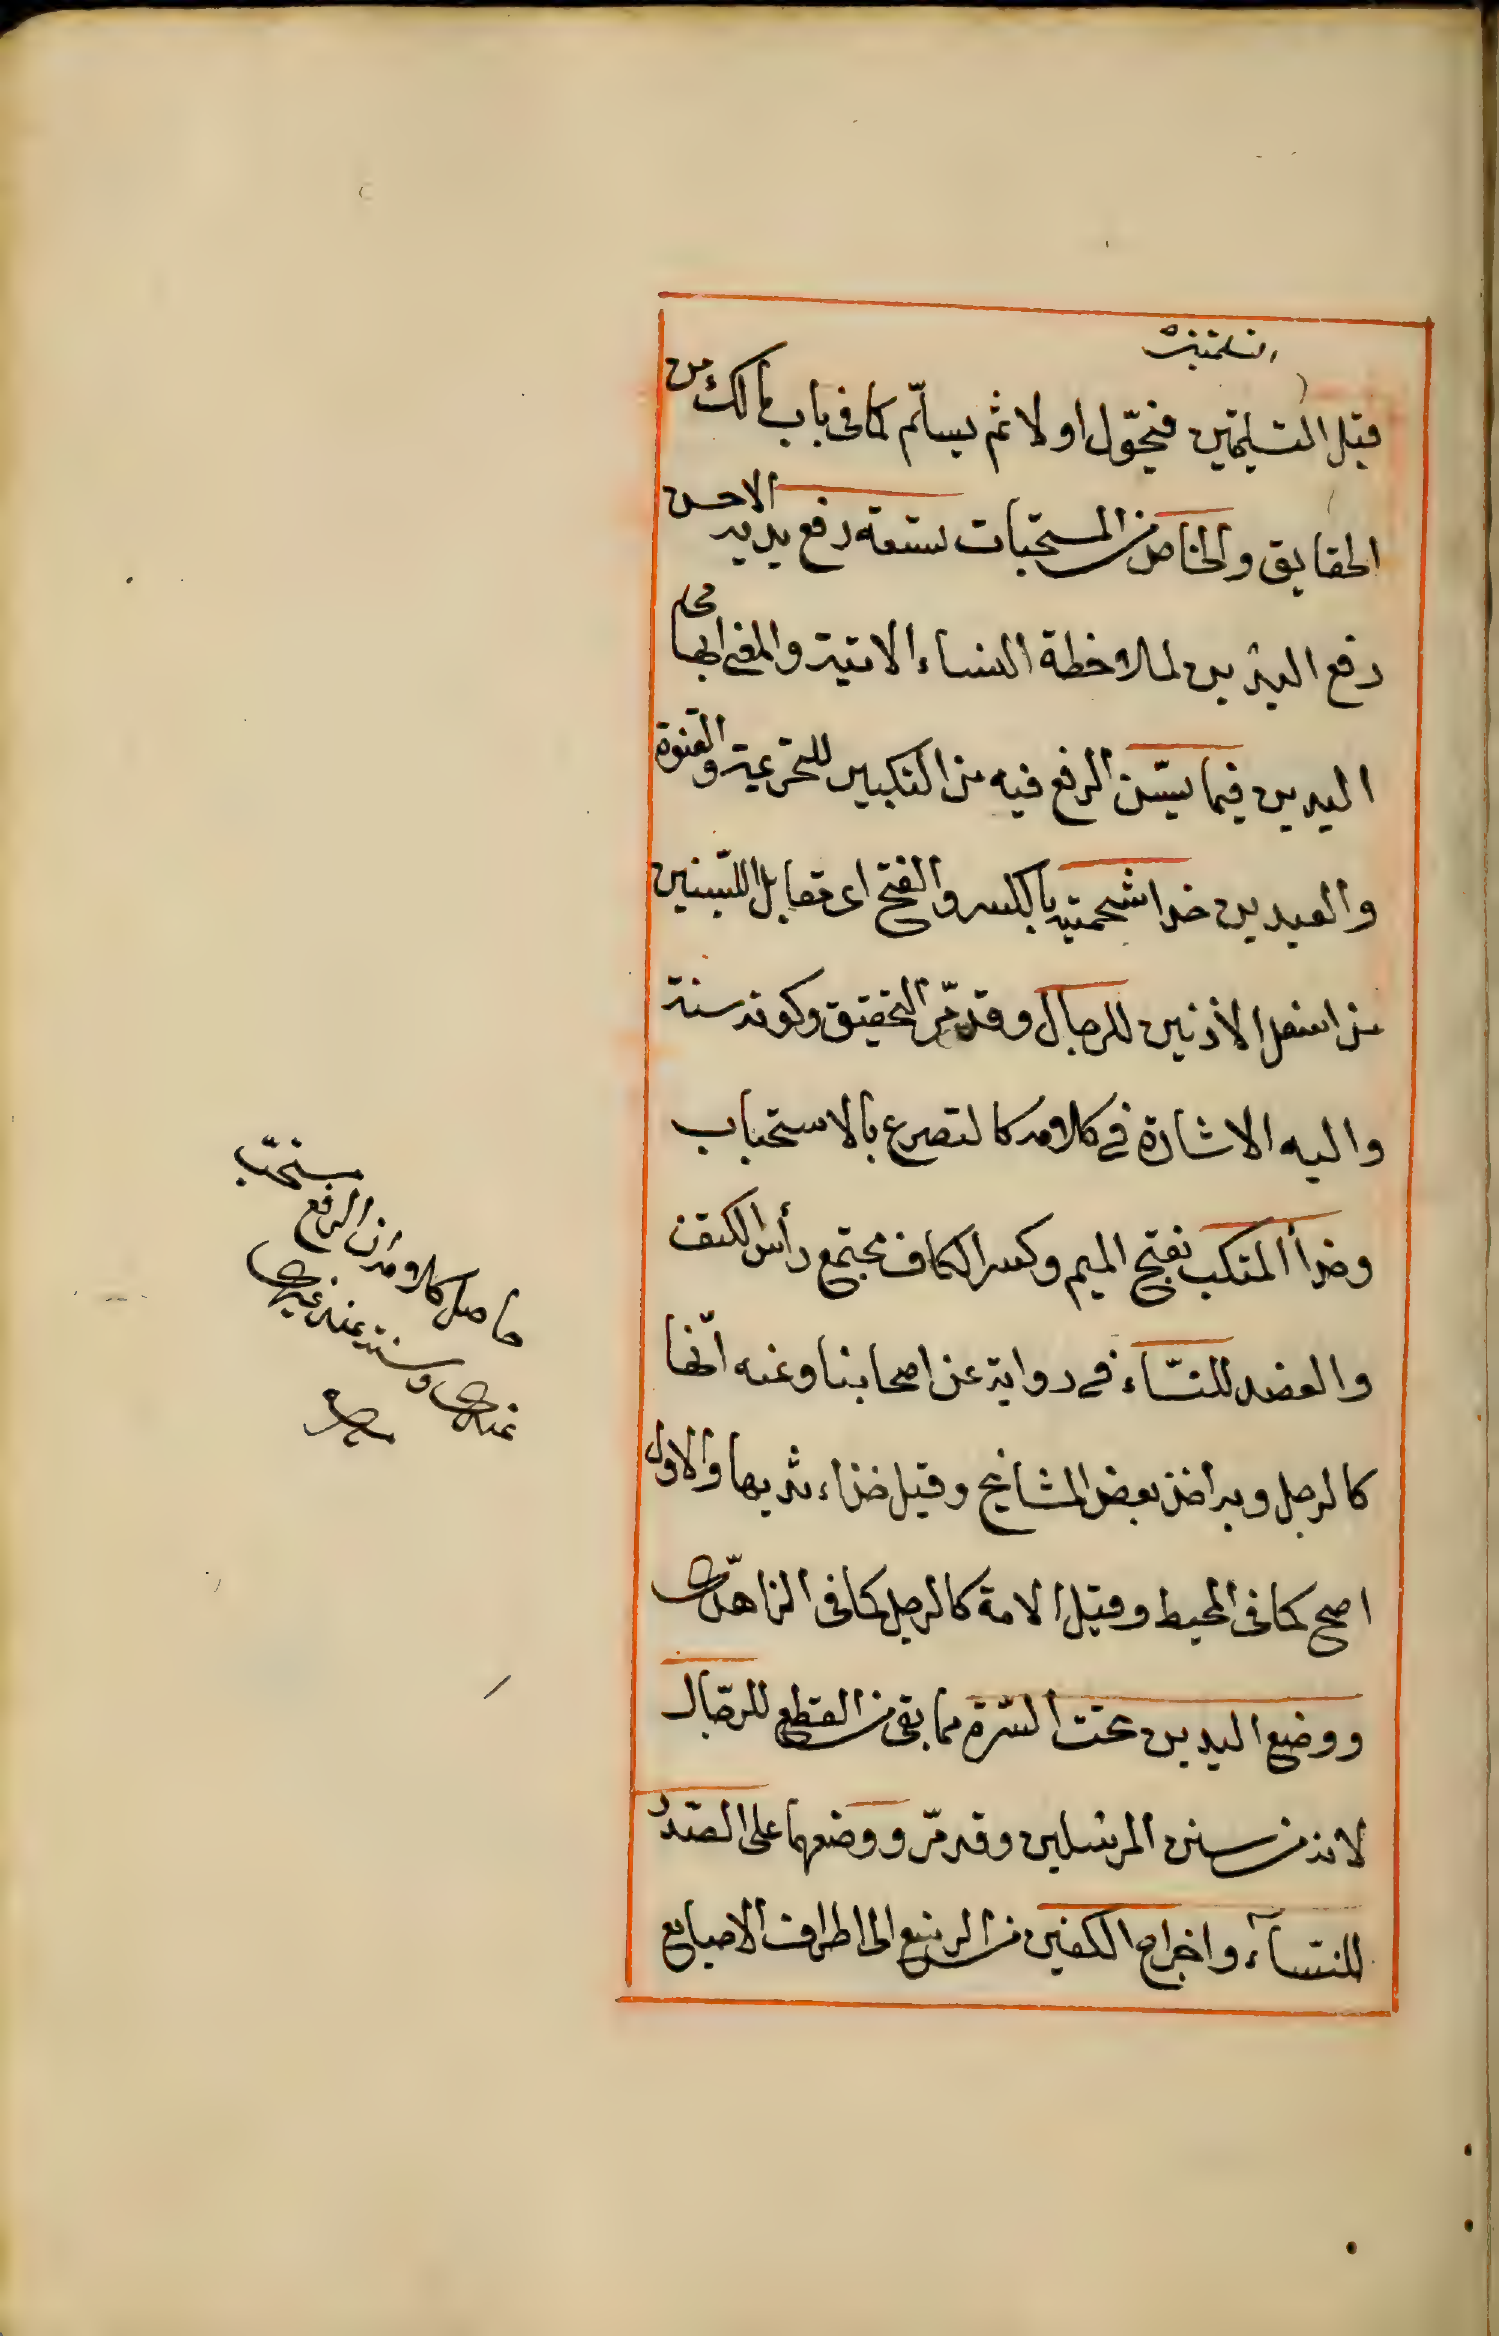 قبل التسليمتين فيحوّل اولا ثم يسلّم كما فى باب مالك من
الحقايق والخامس من المستحبات تسعة رفع يديه الاحسن
رفع اليدين لملاحظة النساء الاتية والمعنى
اليدين فيما يسّن الرفع فيه من التكبير للتحريمة والقنوة
والعيدين حذا شحمتيه بالكسر والفتح اى مقابل اللينين
من اسفل الاذنين للرجال وقد مرّ التحقيق وكونه سنة
واليه الاشارة فى كلامه كالتصريح بالاستحباب
وحذأ المنكب بفتح الميم وكسر الكاف مجتمع رأس الكتف
والعضد للنسّاء فى رواية عن اصحابنا وعنه انّها
كالرجل وبه اخذ بعض المشايخ وقيل حذاء ثدييها والاول
اصح كما فى المحيط وقيل الامة كالرجل كما فى الزاهدّى
ووضع اليدين تحت السّرة مما بقى من القطع للرجّال
لانه من سنن المرسلين وقد مرّ ووضعهما على الصّدر
للنسّآء واخراج الكفين من الرسغ الى اطراف الاصابع
حاصل كلامه ان الرفع مستحبّ
عندى وسنة عند غيرى